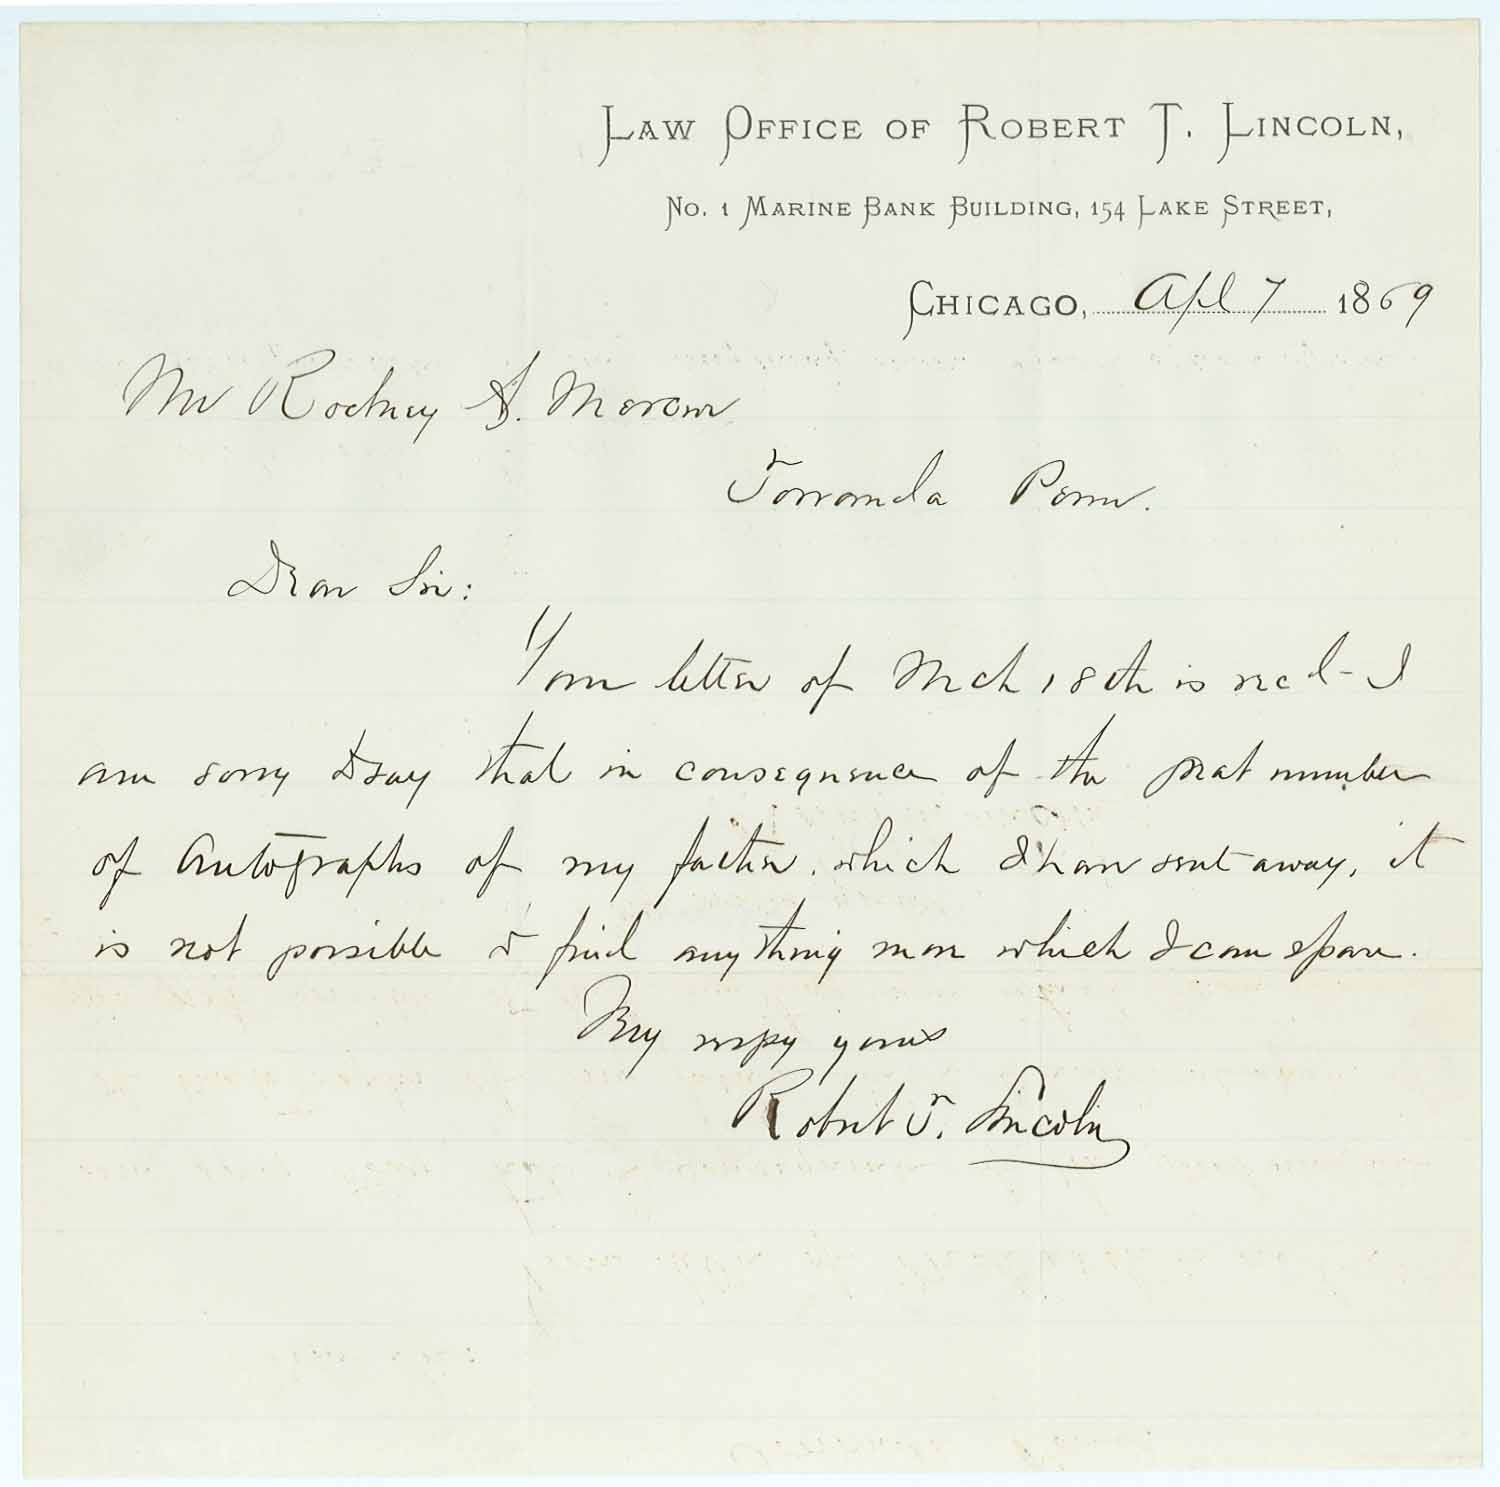 LAW OFFICE OF ROBERT T. LINCOLN,
NO. 1 MARINE BANK BUILDING, 154 LAKE STREET,
CHICAGO, Apl 7 1869
Mr Rodney A. Mercur
Towanda Penn.
Dear Sir:
Your letter of Mch 18th is recd - I
am sorry to say that in consequence of the great number
of Autographs of my father, which I have sent away, it
is not possible to find anything more which I can spare.
Very respy yours
Robert T. Lincoln